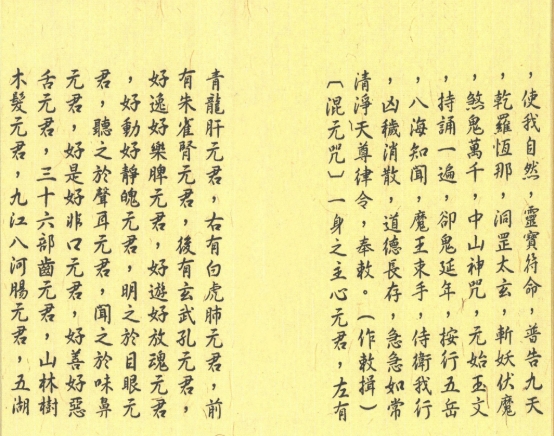 ，使我自然，靈寶符命，普告九天
，乾羅恆那，洞罡太玄，斬妖伏魔
，煞鬼萬千，中山神咒，元始玉文
，持誦一遍，卻鬼延年，按行五岳
，八海知聞，魔王束手，侍衛我行
，凶穢消散，道德長存，急急如常
清淨天尊律令，奉敕。（作敕揖）
〔混元咒〕一身之主心元君，左有
青龍肝元君，右有白虎肺元君，前
有朱雀腎元君，後有玄武孔元君，
好逸好樂脾元君，好遊好放魂元君
，好動好靜魄元君，明之於目眼元
君，聽之於聲耳元君，聞之於味鼻
元君，好是好非口元君，好善好惡
舌元君，三十六部齒元君，山林樹
木髮元君，九江八河腸元君，五湖